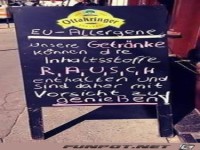 Ottakringer
EU-Allergene
Unsere Getränke
können die
Inhaltsstoffe
R,A,U,S,C,H
enthalten und
sind daher mit
Vorsicht zu
genießen
FUNPOT.NET